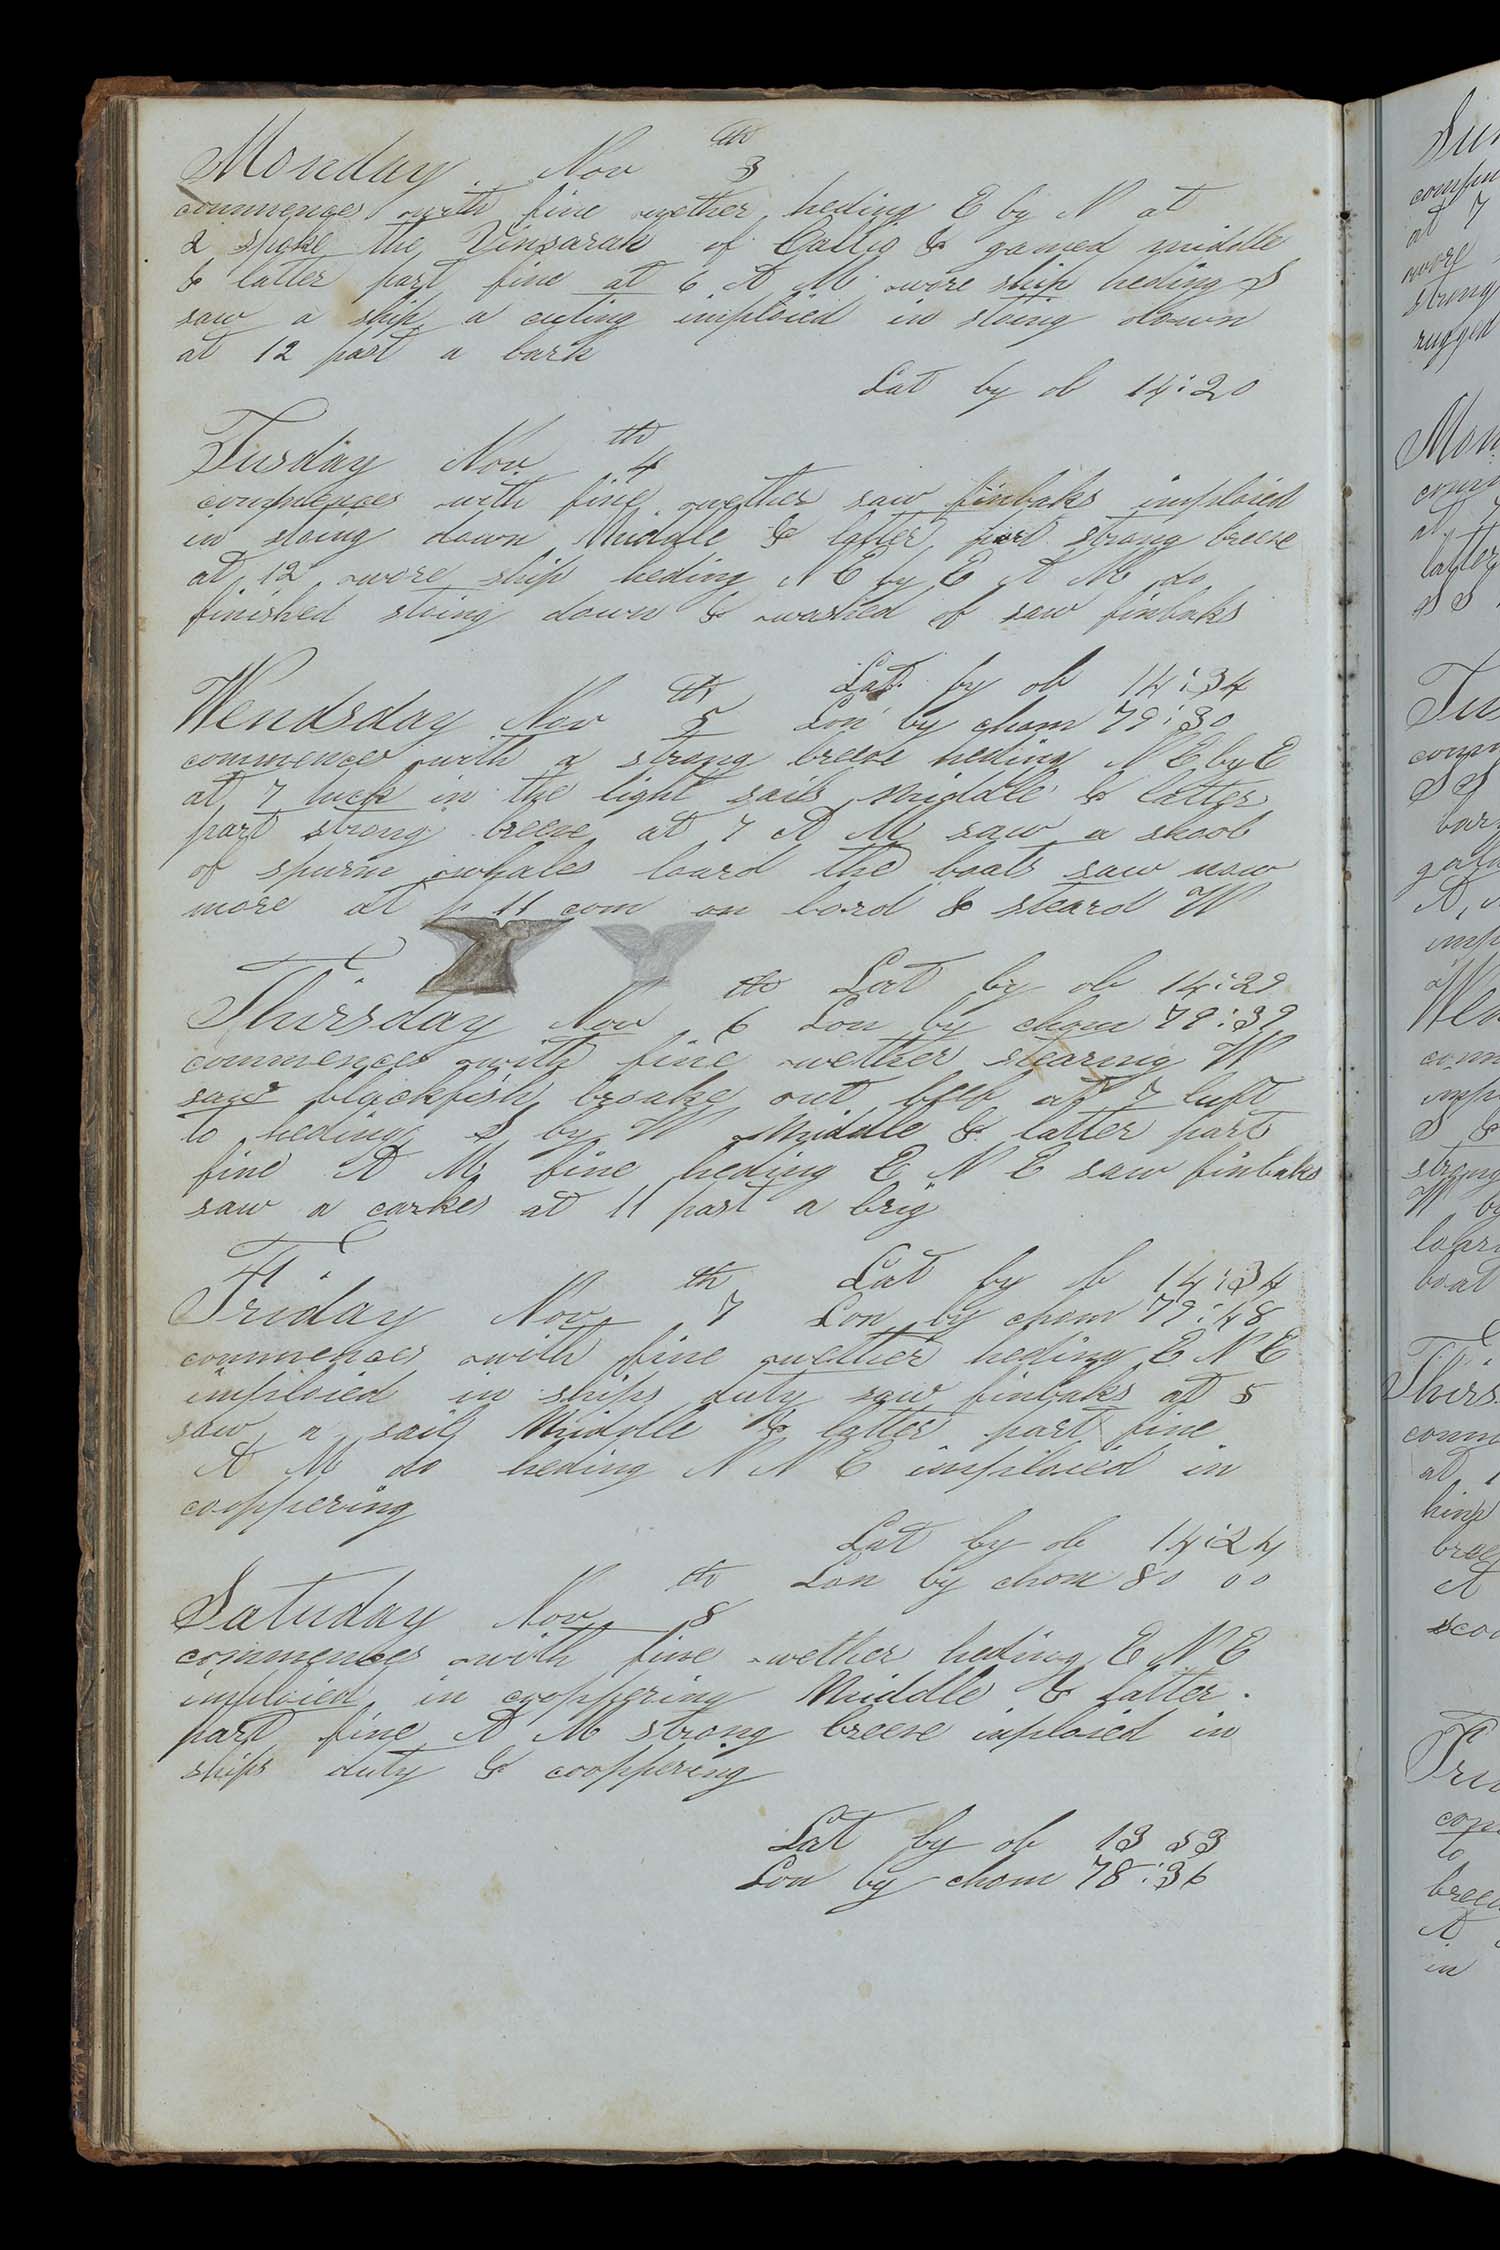 Monday Nov 3th
commences with fine wether heding E by N at
2 spoke the Vinsarah of Callio & gamed middle
& latter part fine at 6 A M wore ship heding S
saw a ship a cuting imploied in stoing down
at 12 past a bark
Lat by ob 14:20
Tusday Nov 4th
commences with fine wether saw finbaks imploied
in stoing down Middle & latter part strong breese
at 12 wore ship heding N E by E A M do
finished stoing down & washed of saw finbaks
Lat by ob 14:34
Wendsday Nov 5th Lon by chom 79:30
commences with a strong breese heding N E by E
at 7 tuck in the light sails Middle & latter
part strong breese at 7 A M saw a skool
of spurm whales loard the boats saw now
more at 11 com on bord & steard W
Lat by ob 14:29
Thirsday Nov 6th Lon by chom 79:39
commences with fine wether stearing W
saw blackfish broake out beef at 7 luft
to heding S by W Middle & latter part
fine A M fine heding E N E saw finbaks
saw a carkes at 11 past a brig
Lat by ob 14:34
Friday Nov 7th Lon by chom 79:48
commences with fine wether heding E N E
imploied in ships duty saw finbaks at 5
saw a sail Middle & latter part fine
A M do heding N N E imploied in
cooppering
Lat by ob 14:24
Lon by chom 80 00
Satuday Nov 8th
commences with fine wether heding E N E
imploied in cooppering Middle & latter
part fine A M strong breese inploied in
ships duty & cooppering
Lat by ob 13 53
Lon by chom 78:36